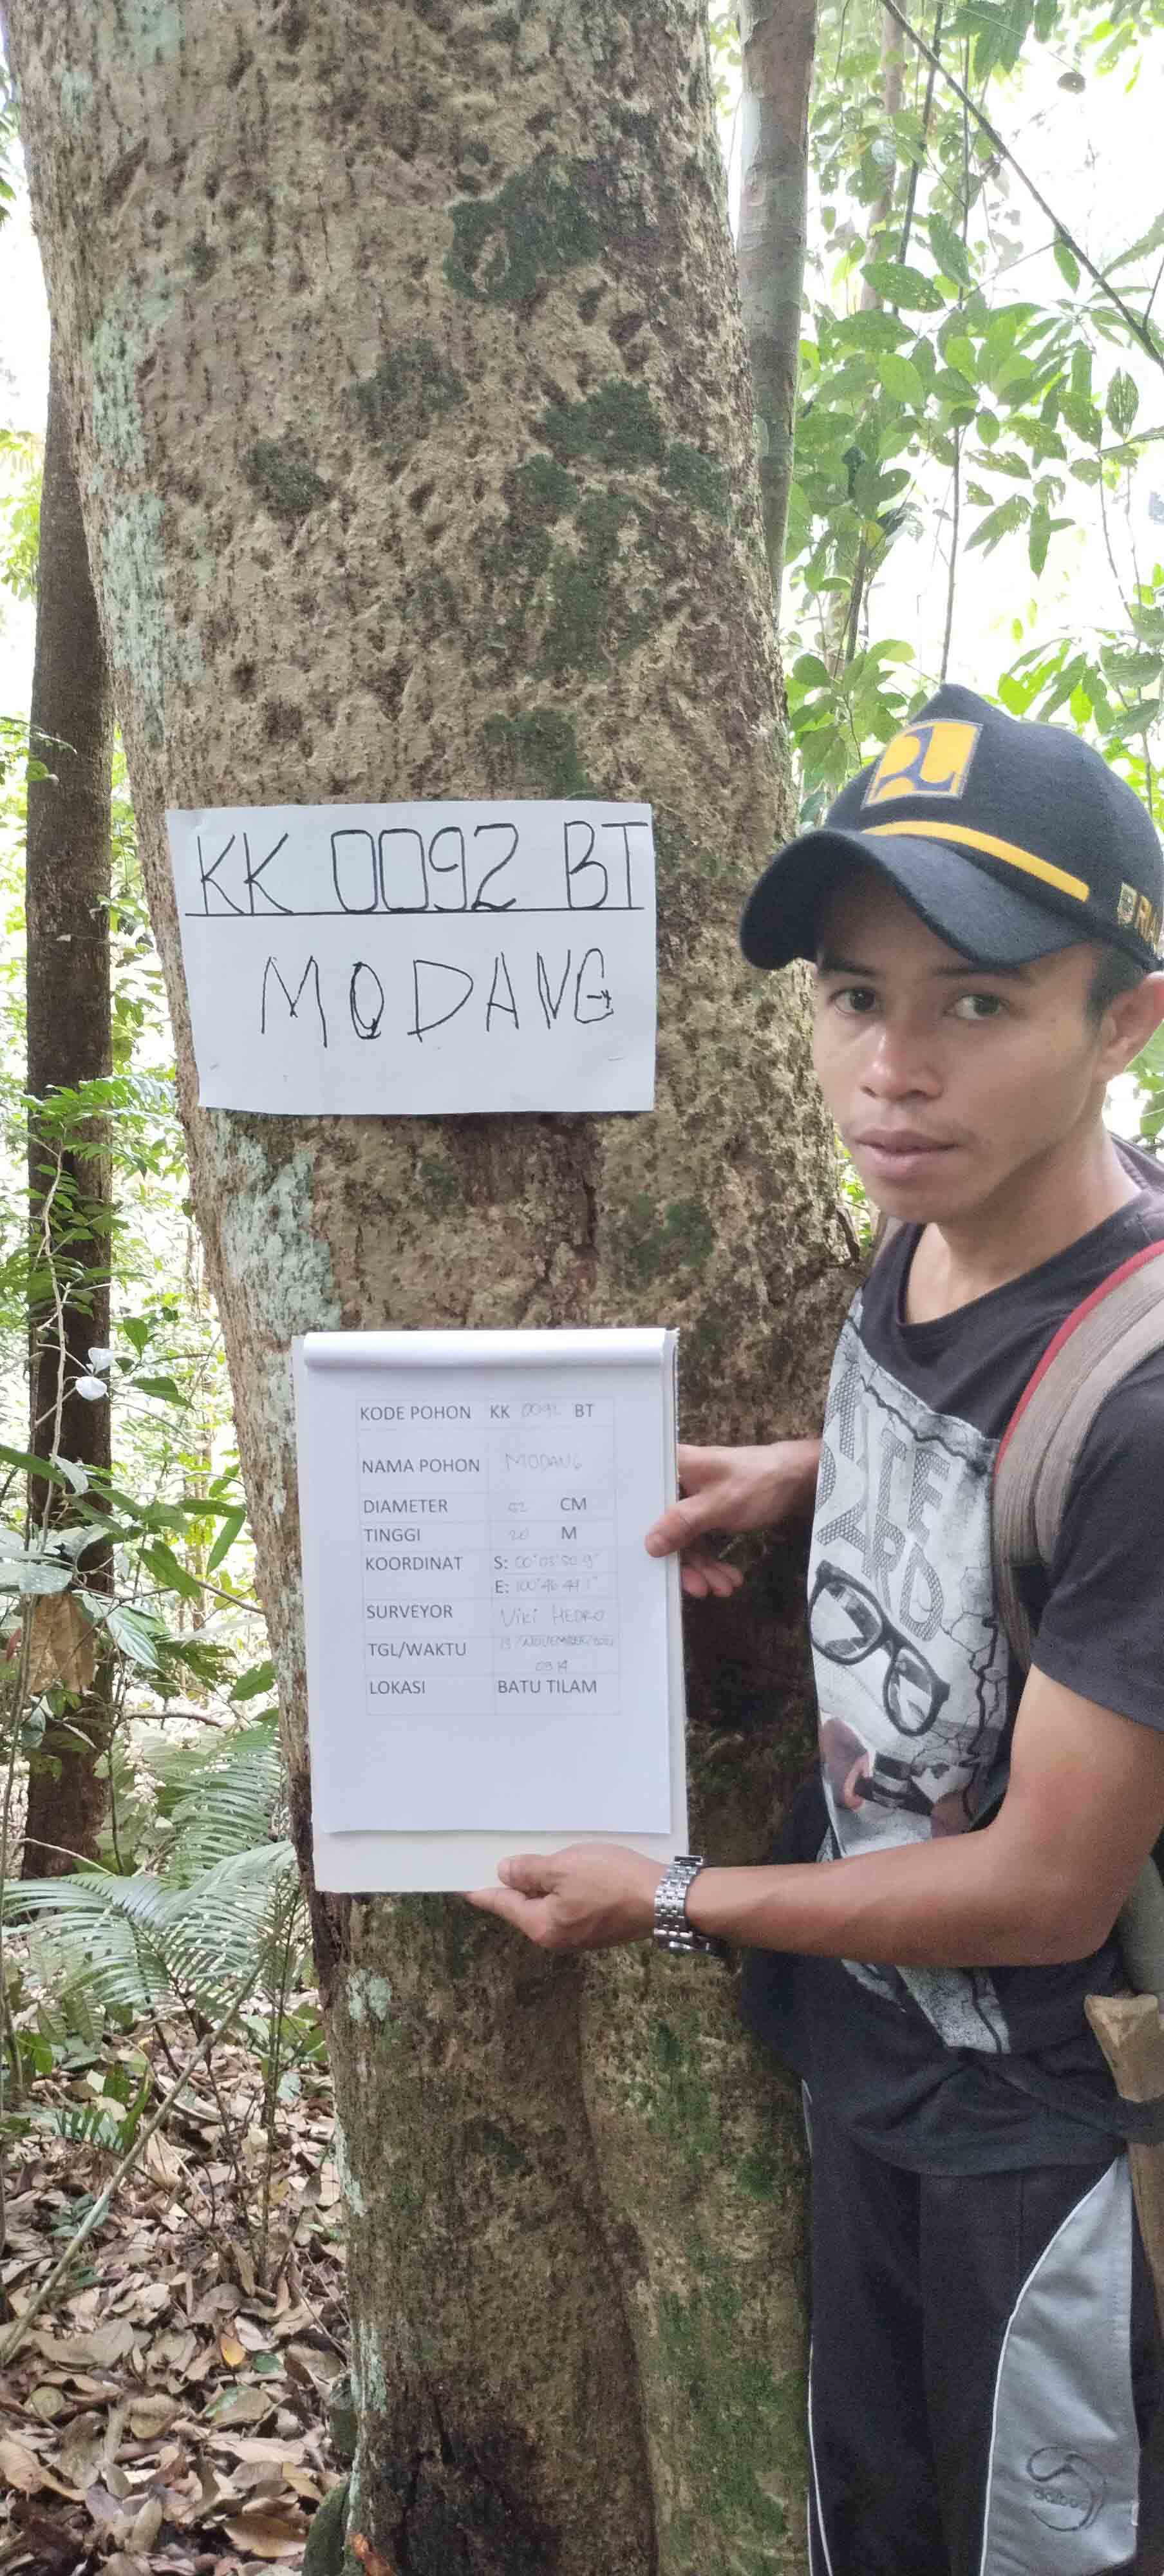 KK 0092 BT
MODANG
KODE POHON KK 0092 BT
NAMA POHON MODANG
DIAMETER CM
TINGGI 20 M
KOORDINAT S: 00°03'50.9"
E: 100°46'49.1"
SURVEYOR Viki HEDRO
TGL/WAKTU 13/NOVEMBER/2021
09.14
LOKASI BATU TILAM